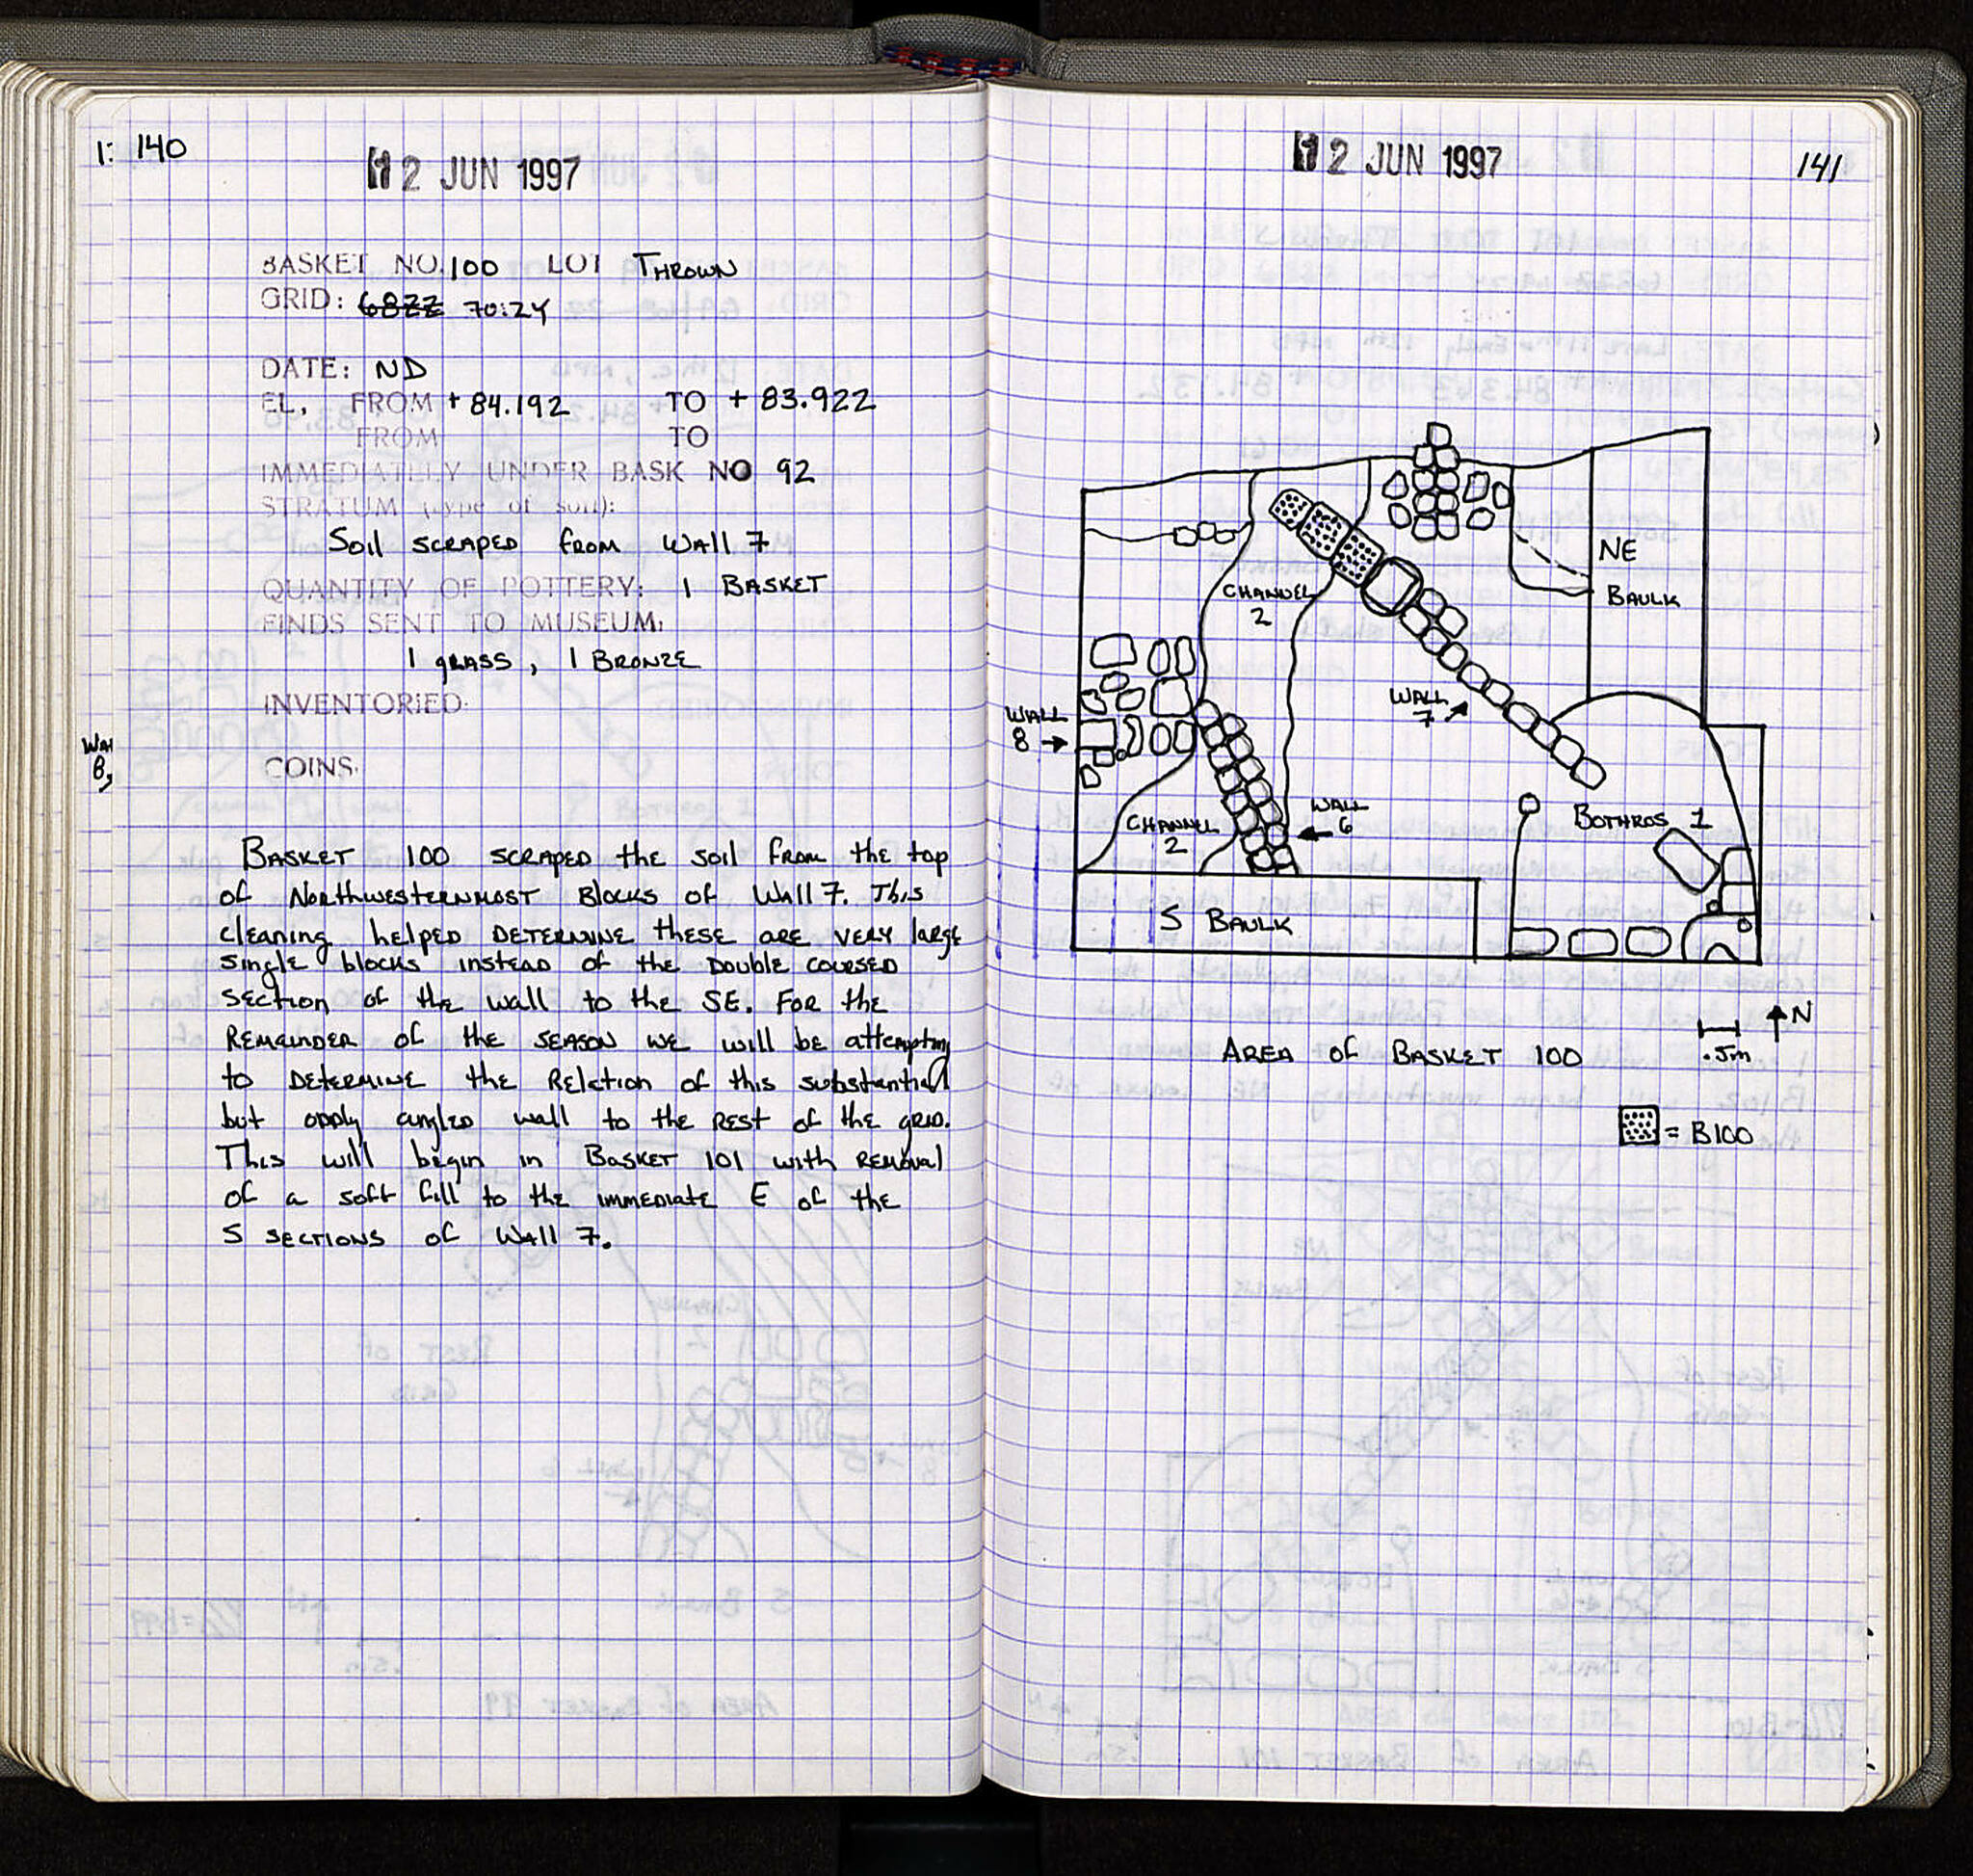 140
12 JUN 1997
BASKET NO. 100 LOT THROWN
GRID: 68ZZ 70:24
DATE: ND
EL, FROM + 84.192 TO + 83.922
FROM TO
IMMEDIATELY UNDER BASK NO 92
STRATUM (type of soil):
Soil scraped from Wall 7
QUANTITY OF POTTERY: 1 BASKET
FINDS SENT TO MUSEUM:
1 glass, 1 Bronze
INVENTORIED:
COINS:
Basket 100 scraped the soil from the top
of Northwesternmost Blocks of Wall 7. This
cleaning helped determine these are very large
single blocks instead of the double coursed
section of the wall to the SE. For the
remainder of the season we will be attempting
to determine the relation of this substantial
but oddly angled wall to the rest of the grid.
This will begin in Basket 101 with removal
of a soft fill to the immediate E of the
S sections of Wall 7.
12 JUN 1997
141
NE
BAULK
CHANNEL
2
WALL
7
WALL
8
CHANNEL
2
WALL
6
BOTHROS 1
S BAULK
N
.5m
AREA OF BASKET 100
= B100